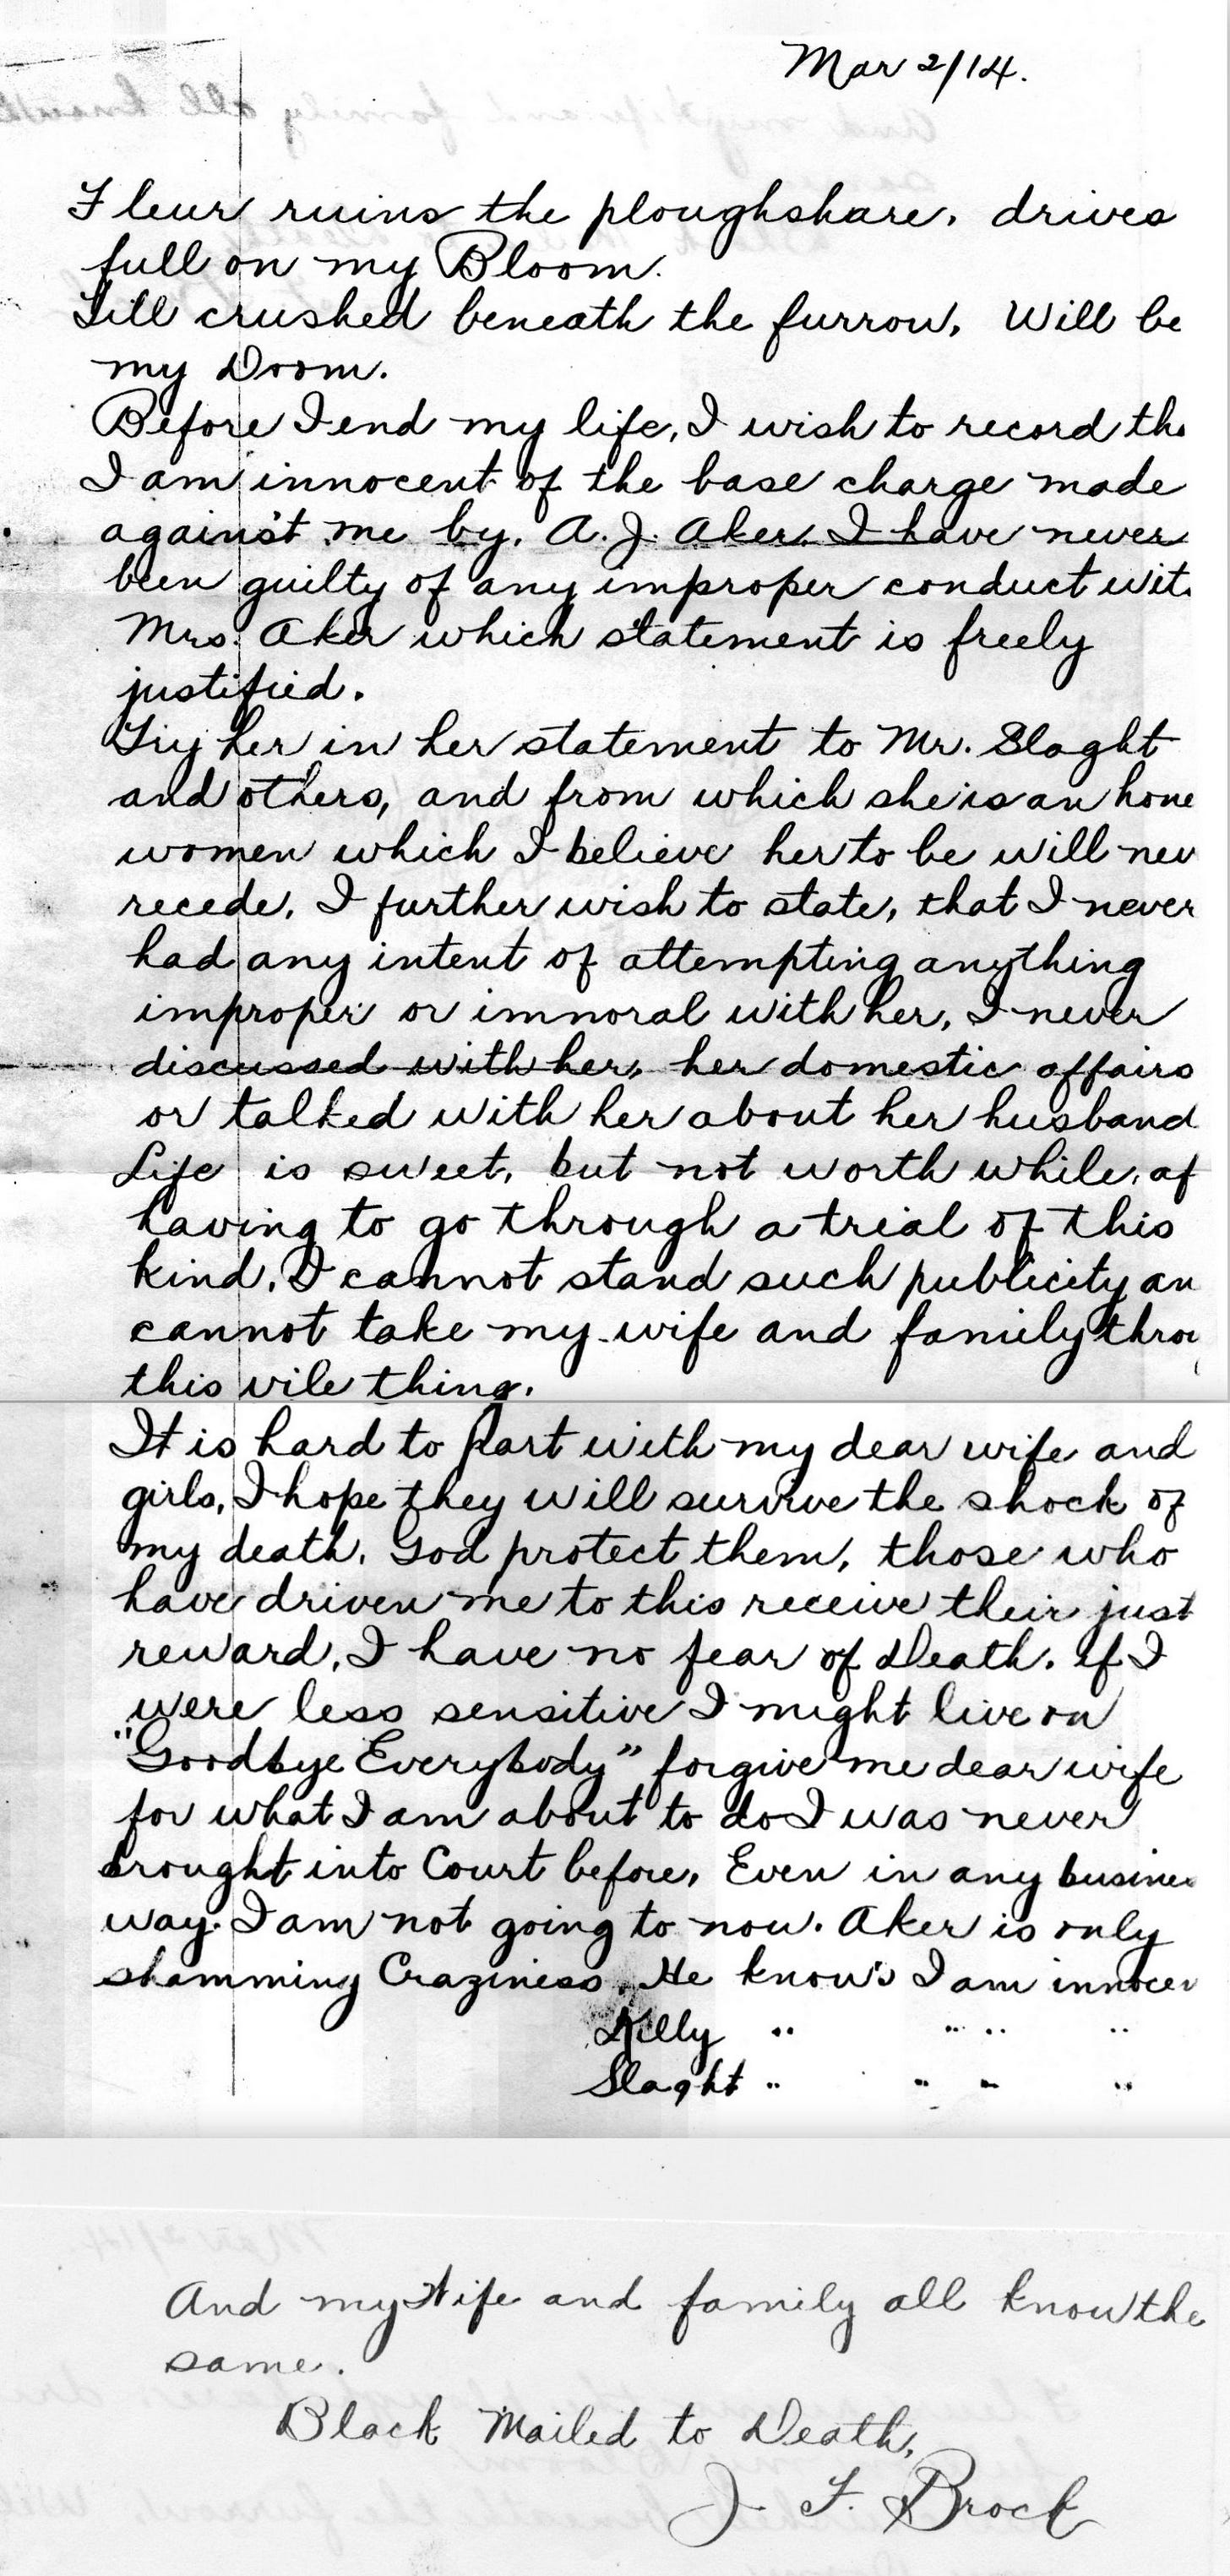 Mar 2/14.
Fleur ruins the ploughshare, drives
full on my Bloom.
Till crushed beneath the furrow, Will be
my Doom.
Before I end my life, I wish to record tha
I am innocent of the base charge made
against me by, A. J. Aker. I have never
been guilty of any improper conduct wit
Mrs. Aker which statement is freely
justified.
her in her statement to Mr. Slaght
and others, and from which she is an hone
women which I believe her to be will nev
recede, I further wish to state, that I never
had any intent of attempting anything
improper or immoral with her, I never
discussed with her, her domestic affairs
or talked with her about her husband
Life is sweet, but not worth while, af
having to go through a trial of this
kind, I cannot stand such publicity an
cannot take my wife and family throu
this vile thing.
It is hard to part with my dear wife and
girls, I hope they will survive the shock of
my death. God protect them, those who
have driven me to this receive their just
reward, I have no fear of Death. If I
were less sensitive I might live on
"Goodbye Everybody" forgive me dear wife
for what I am about to do I was never
brought into Court before, Even in any busines
way. I am not going to now. Aker is only
shamming Craziness. He know's I am innocen
Killy " " " "
Slaght " " " "
And my Wife and family all know the
same.
Black Mailed to Death,
J. F. Brock